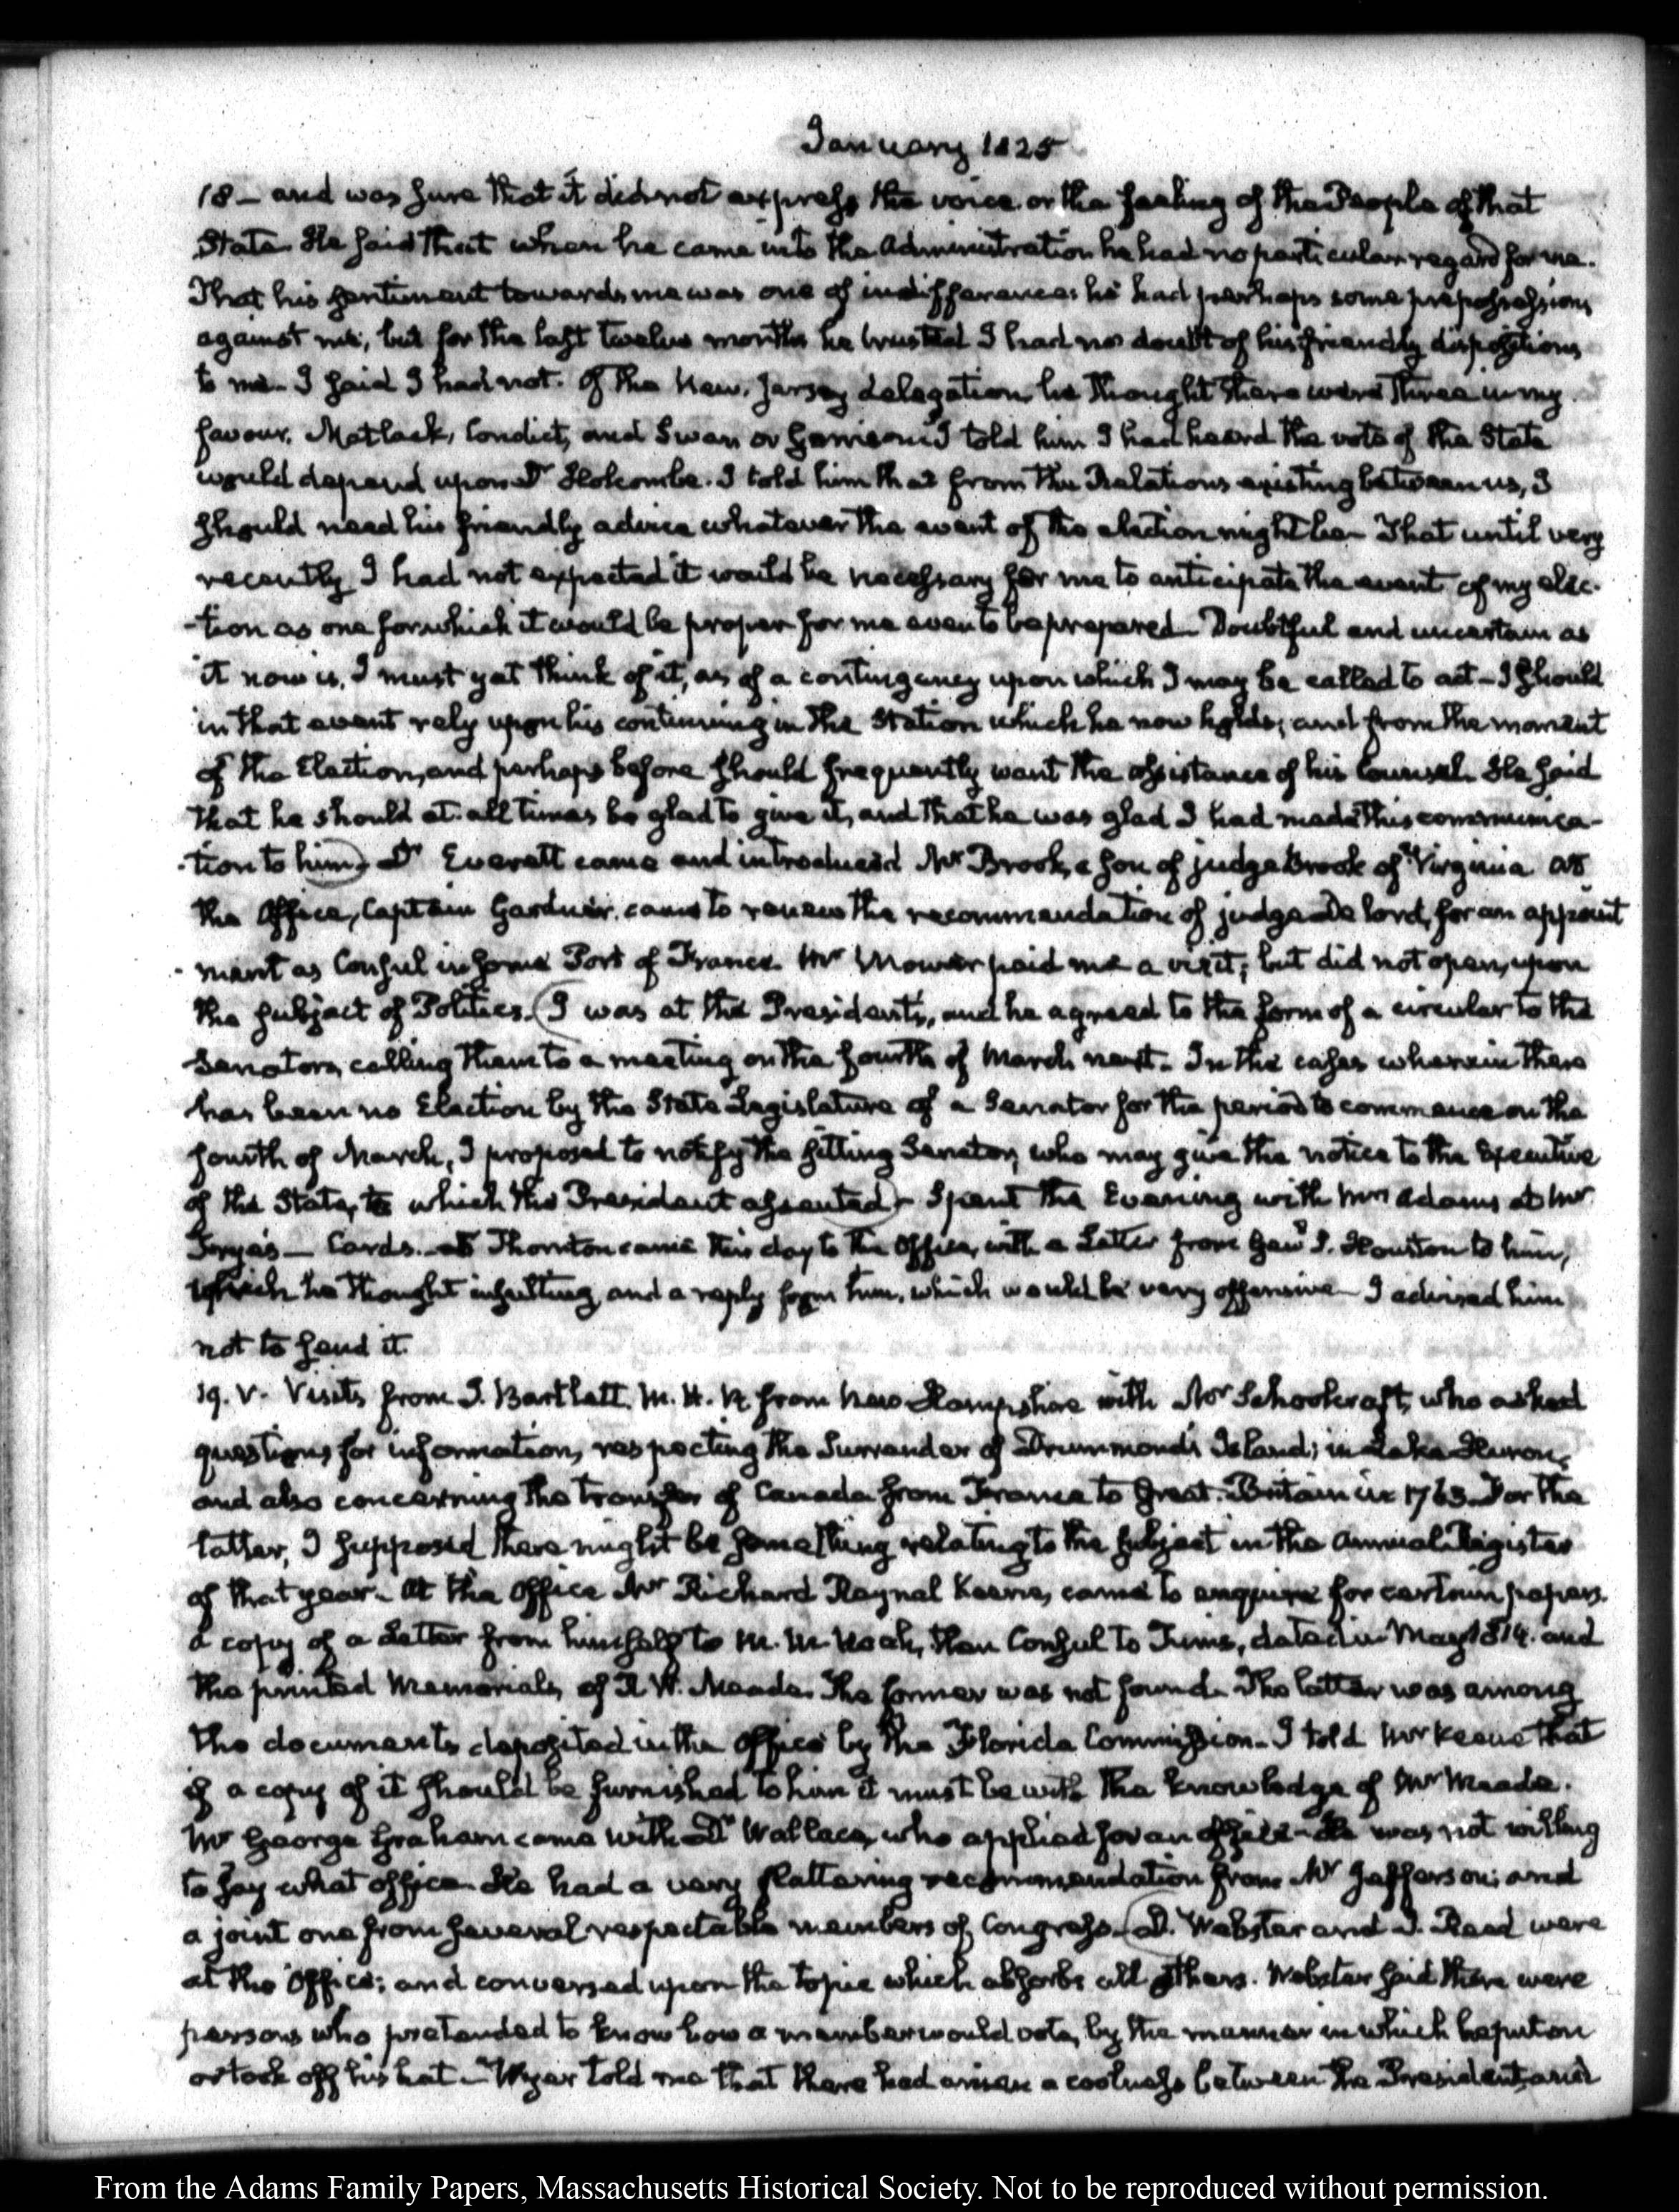 January 1825
18 — and was sure that it did not express the voice or the feeling of the People of that
State. He said that when he came into the Administration he had no particular regard for me.
That his sentiment towards me was one of indifference: he had perhaps some prepossessions
against me; but for the last twelve months he trusted I had no doubt of his friendly dispositions
to me — I said I had not. Of the New-Jersey delegation, he thought there were three in my
favour. Matlack, Condict, and Swan or Garrison. I told him I had heard the vote of the State
would depend upon Dr Holcombe. I told him that from the Relations existing between us, I
should need his friendly advice whatever the event of the election might be — That until very
recently I had not expected it would be necessary for me to anticipate the event of my elec-
-tion as one for which it would be proper for me even to be prepared — Doubtful and uncertain as
it now is, I must yet think of it, as of a contingency upon which I may be called to act — I should
in that event rely upon his continuing in the Station which he now holds; and from the moment
of the Election, and perhaps before should frequently want the assistance of his Counsel. He said
that he should at all times be glad to give it, and that he was glad I had made this communica-
-tion to him) — Dr Everett came and introduced Mr Brook, a son of judge Brook of Virginia. At
the Office, Captain Gardner, came to renew the recommendation of judge De Lord, for an appoint
-ment as Consul in some Port of France. Mr Mower paid me a visit; but did not open, upon
the subject of Politics. (I was at the President's, and he agreed to the form of a circular to the
Senators, calling them to a meeting on the fourth of March next. In the cases wherein there
has been no Election by the State Legislature of a Senator for the period to commence on the
fourth of March, I proposed to notify the sitting Senator, who may give the notice to the Executive
of the State, to which the President assented) — Spent the Evening with Mrs Adams at Mr
— Cards. — Dr Thornton came this day to the Office, with a Letter from Genl S. Houston to him,
which he thought insulting, and a reply from him, which would be very offensive — I advised him
not to send it.
19. V. Visits from I. Bartlett, M. H. R. from New Hampshire with Mr Schoolcraft, who asked
questions for information, respecting the Surrender of Drummond's Island; in Lake Huron,
and also concerning the transfer of Canada from France to Great-Britain in 1763. For the
latter, I supposed there might be something relating to the subject in the Annual Register
of that year — At the Office Mr Richard Raynal Keene, came to enquire for certain papers.
a copy of a Letter from himself to M. M. Noah, then Consul to Tunis, dated in May 1814. and
the printed Memorials, of R. W. Meade. The former was not found. The latter was among
the documents deposited in the Office by the Florida Commission — I told Mr Keene that
if a copy of it should be furnished to him it must be with the knowledge of Mr Meade.
Mr George Graham came with Dr Wallace, who applied for an office — He was not willing
to say what office. He had a very flattering recommendation from Mr Jefferson; and
a joint one from several respectable members of Congress. (D. Webster and J. Reed were
at the Office; and conversed upon the topic which absorbs all others. Webster said there were
persons who pretended to know how a member would vote, by the manner in which he put on
or took off his hat — Wyer told me that there had arisen a coolness between the President, and
From the Adams Family Papers, Massachusetts Historical Society. Not to be reproduced without permission.